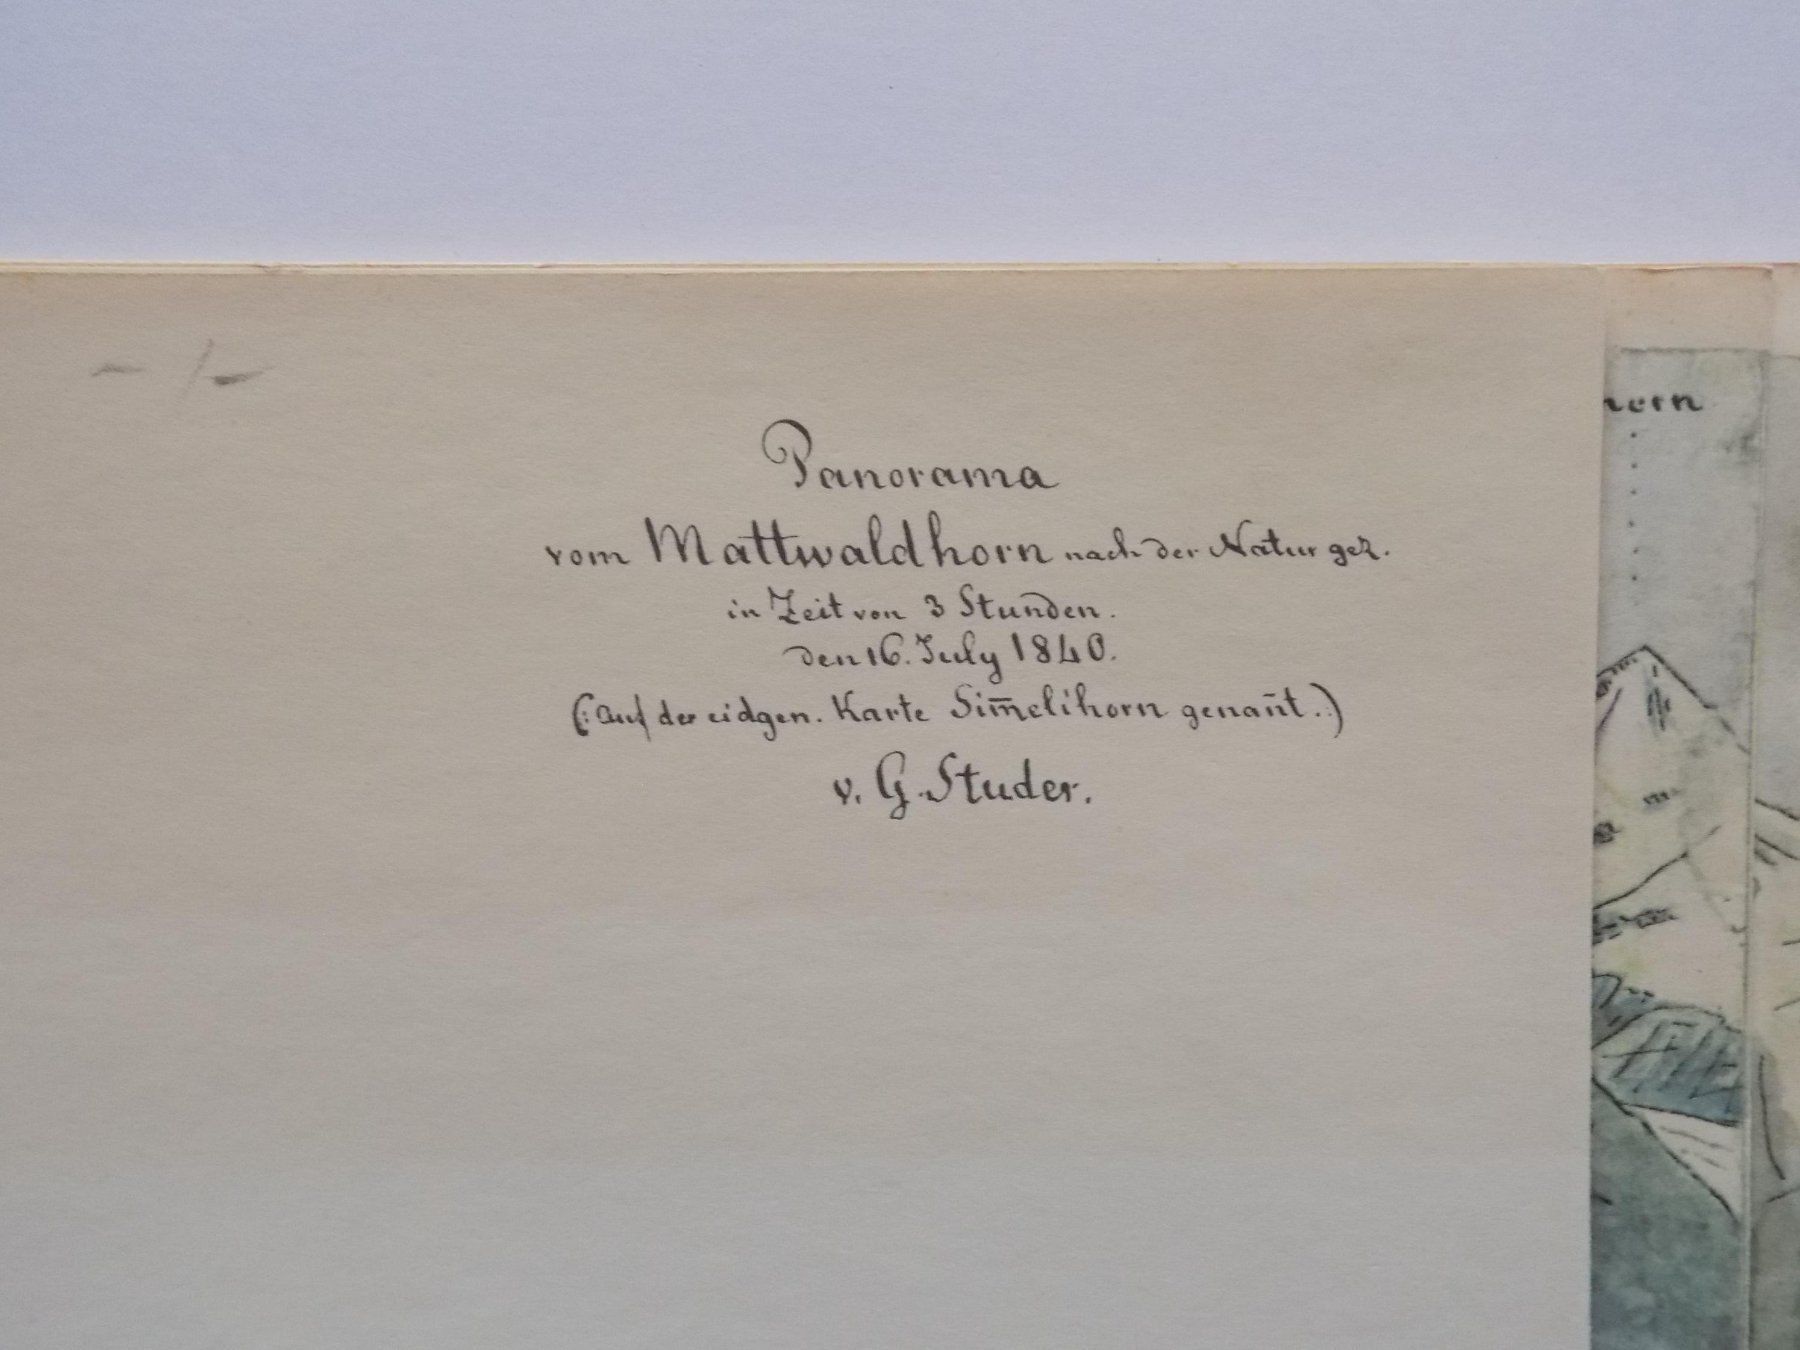 Panorama
vom Mattwaldhorn nach der Natur gez.
in Zeit von 3 Stunden.
den 16. July 1840.
(: Auf der eidgen. Karte Sim̄elihorn genan̄t. :)
v. G. Studer.